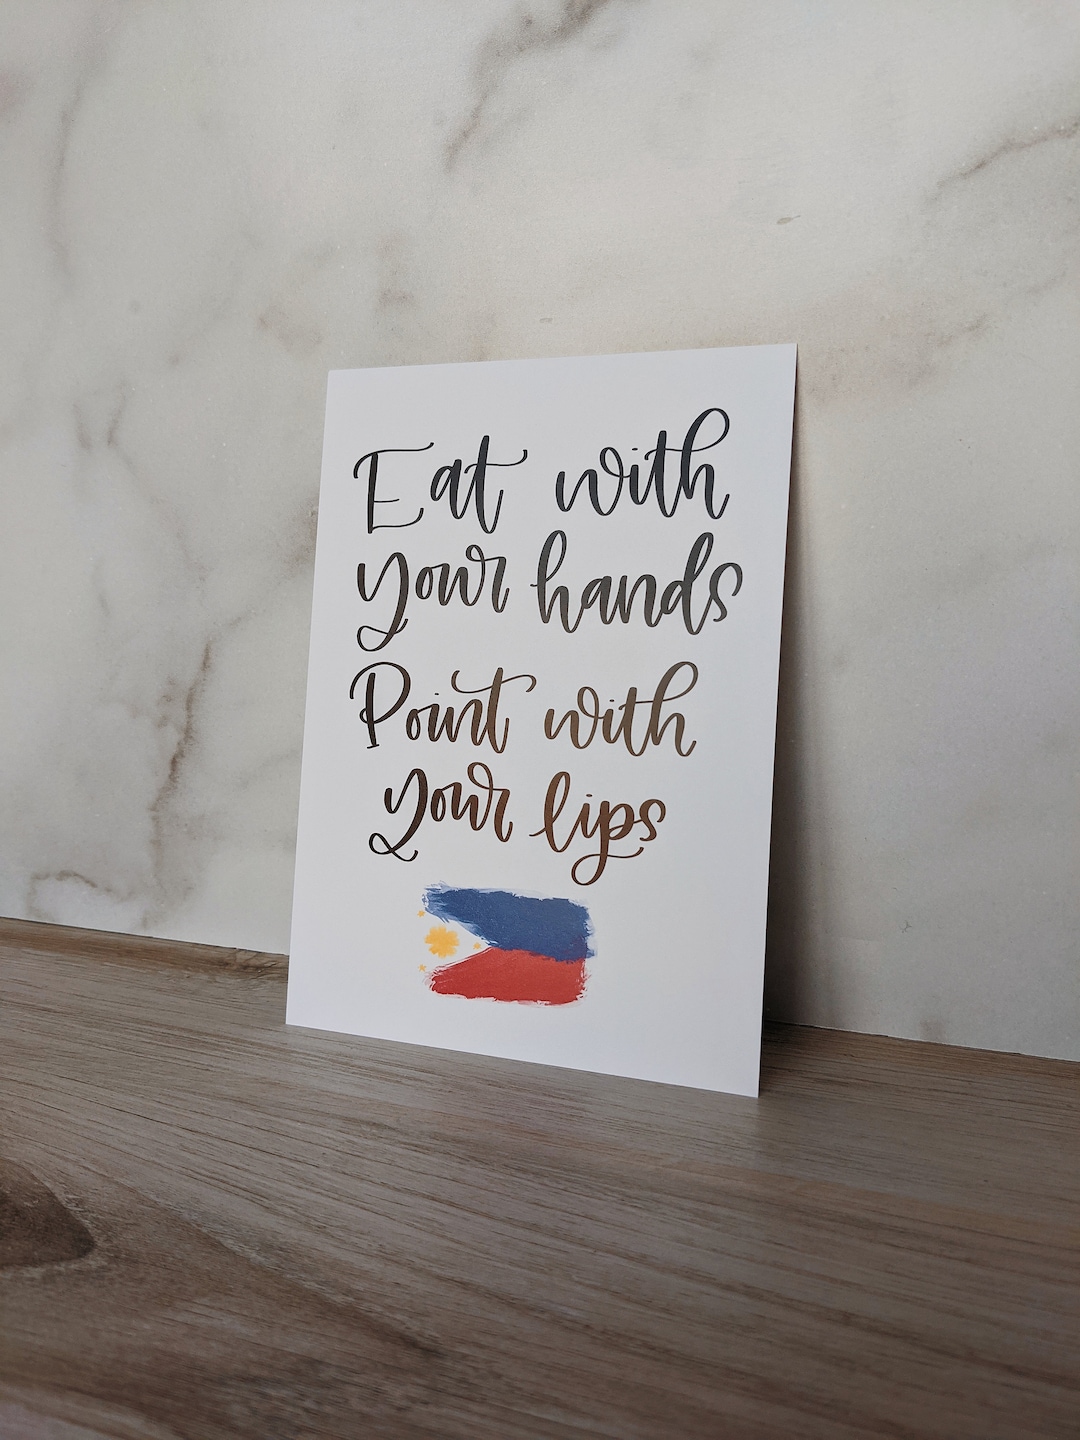 Eat with
your hands
Point with
your lips